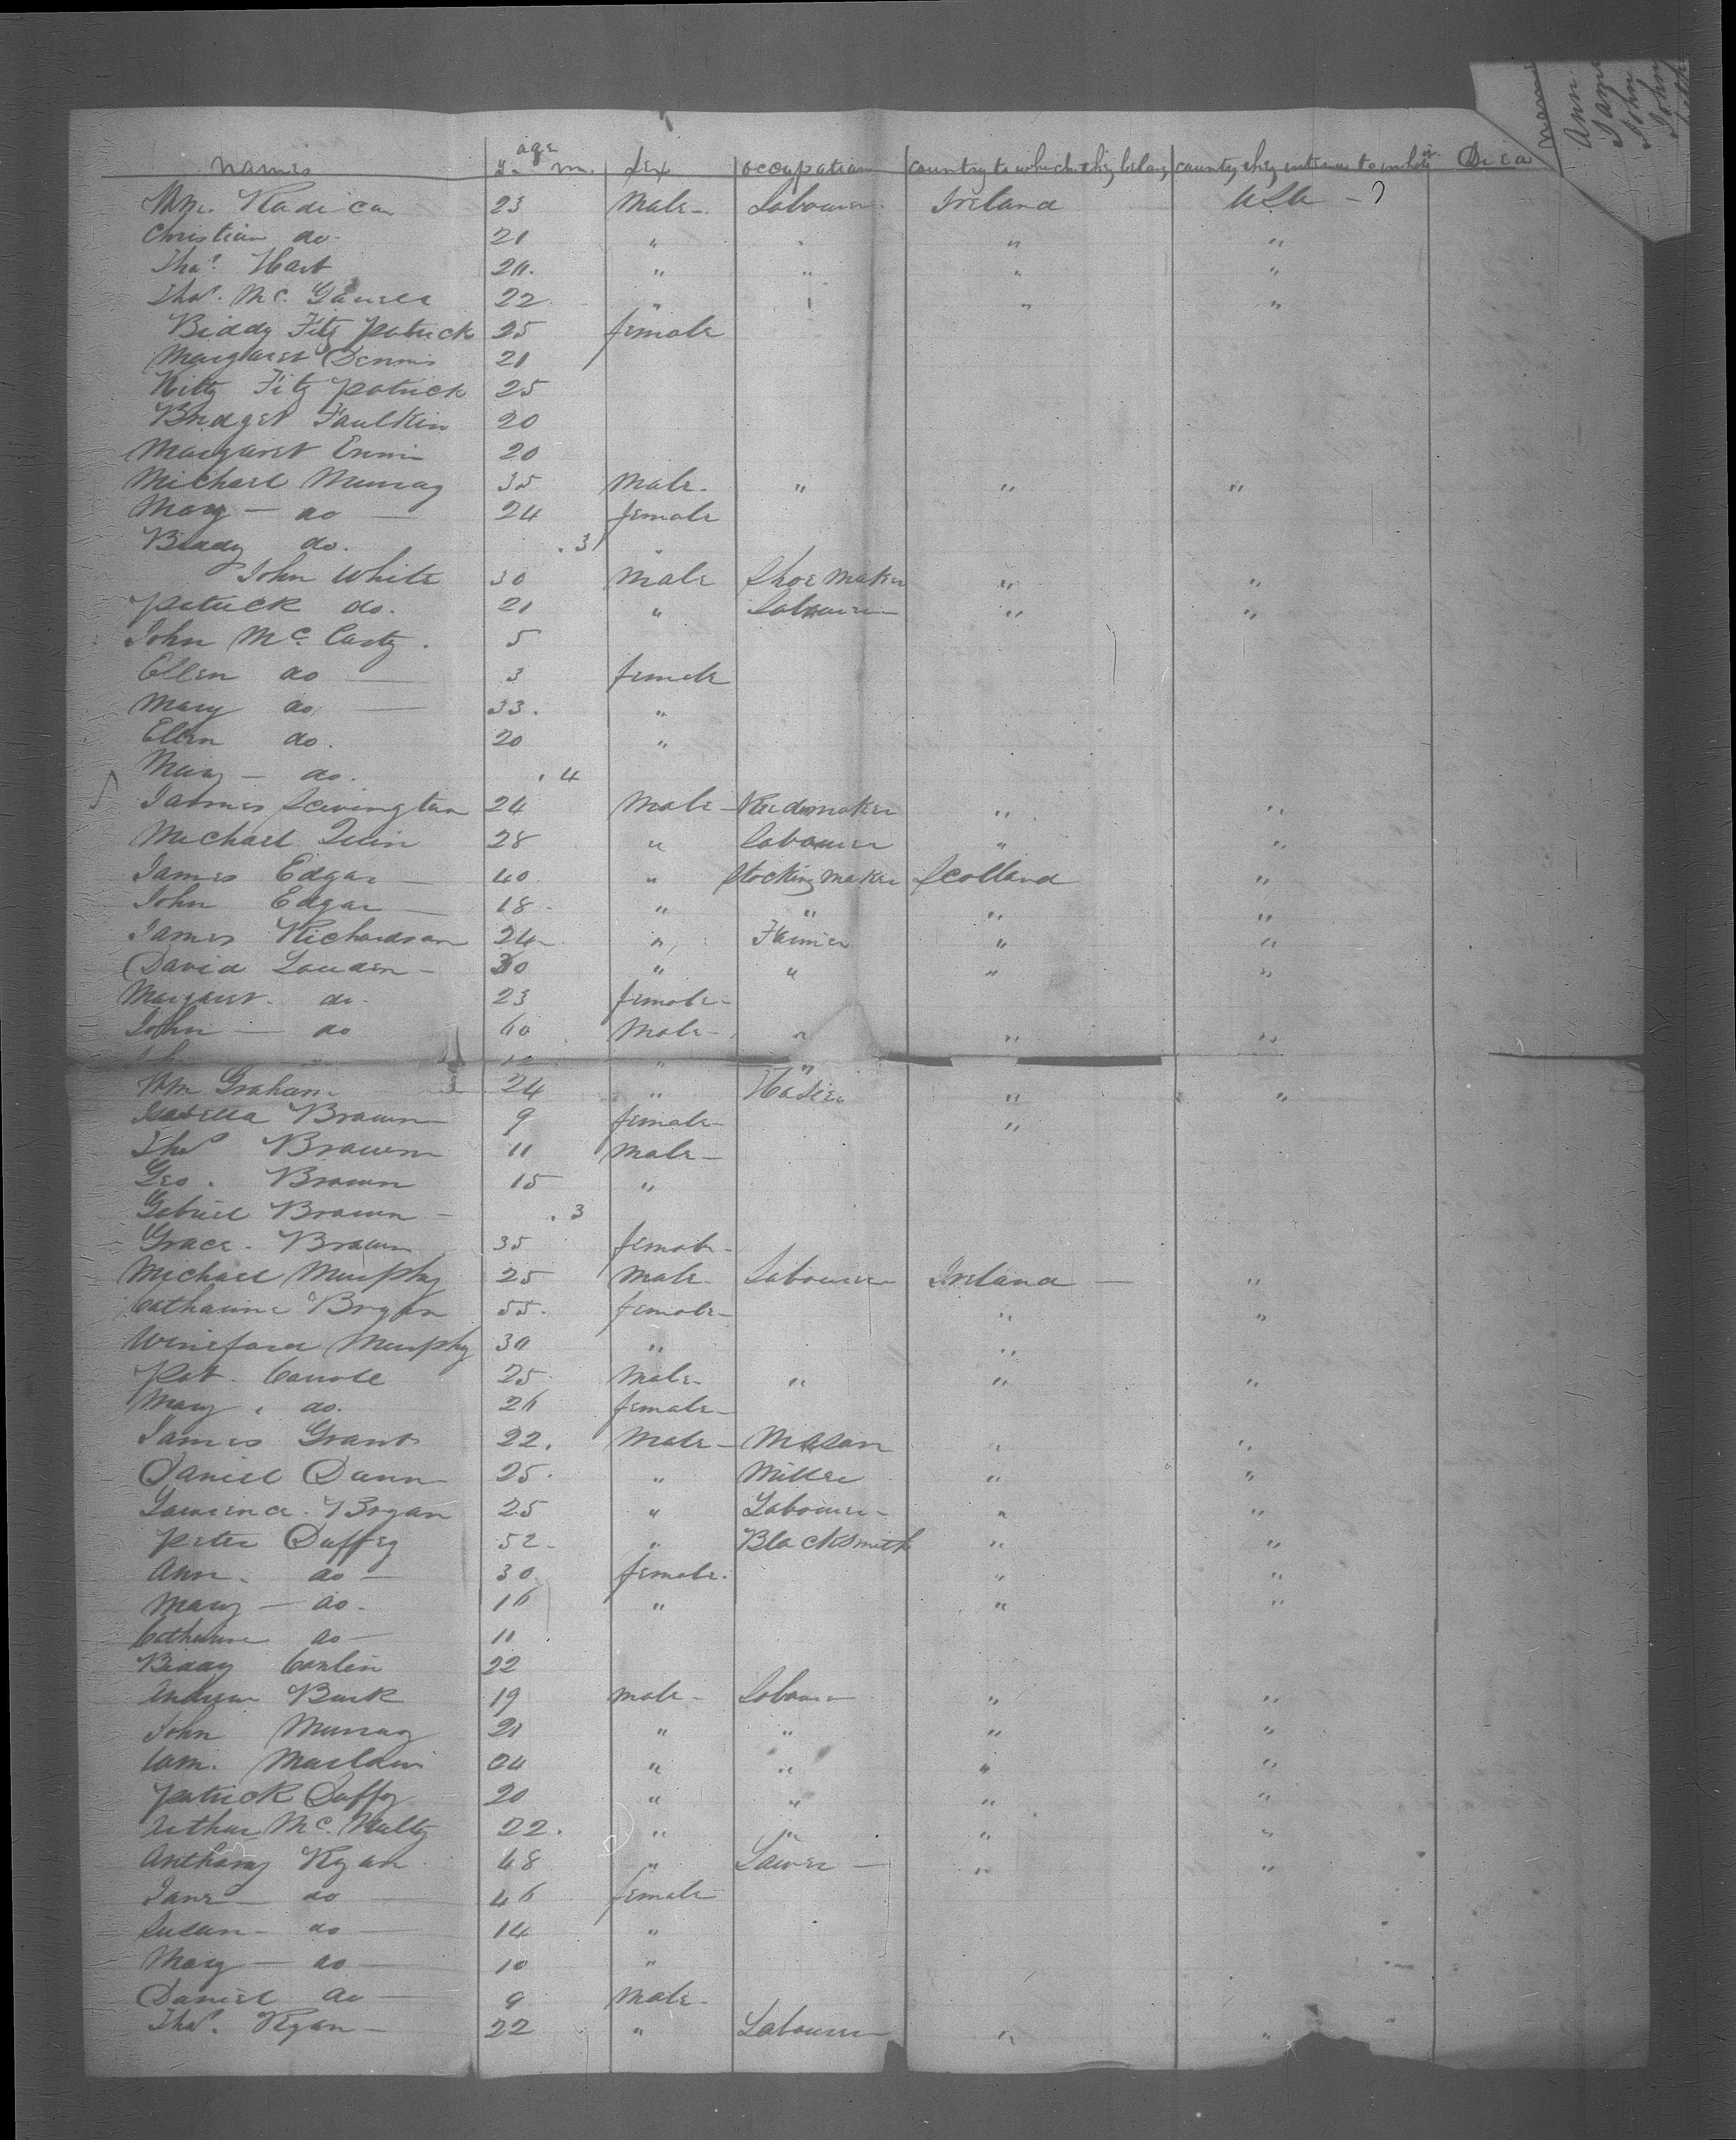 names age y. m. sex occupation country to which they belong country they intend to inhabit Died
Wm. Radican 23 Male Labourer Ireland USA
Christian do. 21 " " " "
Thos. Hart 20. " " " "
Thos. Mc. 22 " " " "
Biddy Fitz patrick 25 female
Margaret Dennis 21
Kitty Fitz patrick 25
Bridget Faulkin 20
Margaret Ennis 20
Michael Murray 35 Male " " "
Mary - do - 24 female
Biddy do. . 3 "
John White 30 Male Shoe Maker " "
Patrick do. 21 " Labourer " "
John Mc. Carty. 5
Ellen do - 3 female
Mary do - 33. "
Ellen do. 20 "
Mary - do. . 4
James 24 Male Reedmaker " "
Michael Quin 28 " Labourer " "
James Edgar 40 " Stocking Maker Scotland "
John Edgar 18 " " " "
James Richardson 24 " Farmer " "
David Louden - 30 " " " "
Margaret do. 23 female
John - do 60 Male " " "
12 " "
Wm Graham 24 " Hosier " "
Isabella Brown 9 female "
Thos Brown 11 Male
Geo. Brown 15 "
Gabriel Brown . 3
Grace. Brown 35 female
Michael Murphy 25 Male Labourer Ireland "
Catharine Bryan 55. female " "
Wineford Murphy 30 " "
Pat. Carroll 25 Male " " "
Mary. do. 26 female
James Grant 22. Male Mason " "
Daniel Dunn 25. " Miller " "
Lawrence. Bryan 25 " Labourer " "
Peter Duffey 52 " Blacksmith " "
Ann. do - 30 female " "
Mary - do. 16 " " "
Catharine do - 11
Biddy Conlin 22
Andrew Burk 19 male Labourer " "
John Murray 21 " " " "
Wm. 24 " " " "
Patrick Duffy 20 " " " "
Arthur Mc. Nulty 22. " " " "
Anthony Ryan 48 " Sawer " "
Jane - do - 46 female
Susan - do - 14 "
Mary - do - 10 "
Daniel do - 9 Male
Thos. Ryan - 22 " Labourer " "
names
Ann
Jame
John
John